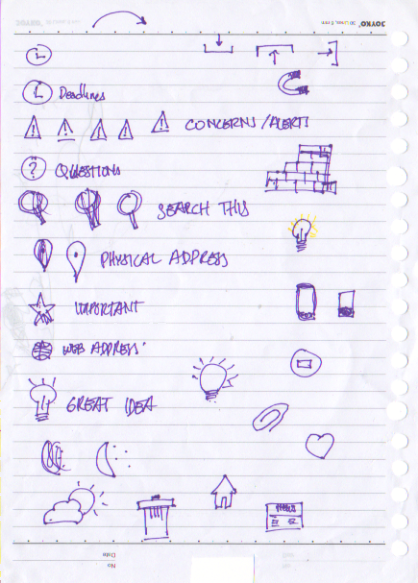 JOYKO
Deadlines
! ! ! ! ! CONCERNS / ALERTS
? QUESTIONS
SEARCH THIS
PHYSICAL ADDRESS
IMPORTANT
WEB ADDRESS
GREAT IDEA
Date
No